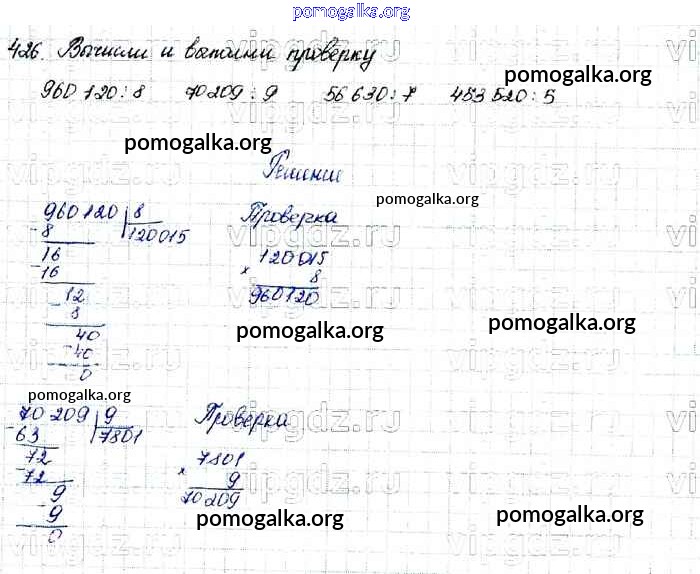 pomogalka.org
426. Вычисли и выполни проверку
960 120 : 8 70 209 : 9 56 630 : 7 453 520 : 5
pomogalka.org
pomogalka.org
Решение
pomogalka.org
960120 | 8
- 8 120015
16
- 16
12
- 8
40
- 40
0
Проверка
120015
x 8
960120
pomogalka.org
pomogalka.org
pomogalka.org
70 209 | 9
- 63 7801
72
- 72
9
- 9
0
Проверка
7801
x 9
70 209
pomogalka.org
pomogalka.org
vipgdz.ru